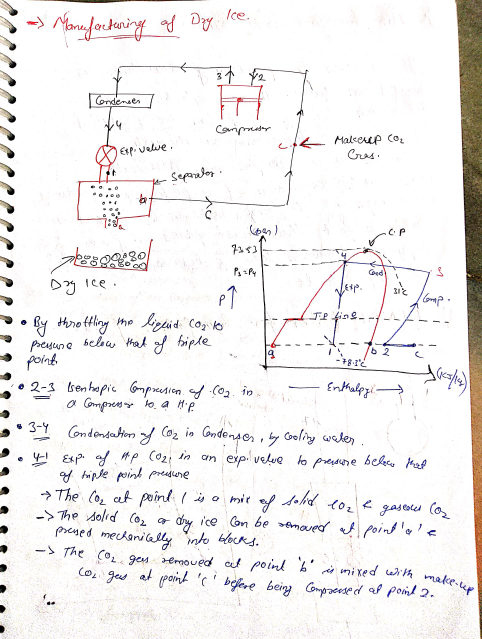 → Manufacturing of Dry Ice.
3 2
Condenser
Compressor
4
Exp. valve.
Makeup CO2
Gas.
c
1
Separator.
b
c
a
Dry Ice.
(bar)
73.53
P3=P4
P ↑
C.P
4
Cond
3
31°C
Exp.
Comp.
T.P line
a 1 b 2 c
-78.5°C
Enthalpy →
(kJ/kg)
• By throttling the liquid CO2 to
pressure below that of triple
point.
• 2-3 Isentropic Compression of CO2 in
a Compressor to a H.p.
• 3-4 Condensation of CO2 in Condenser, by cooling water.
• 4-1 Exp. of H.p CO2 in an exp. valve to pressure below that
of triple point pressure
→ The CO2 at point 1 is a mix of solid CO2 & gaseous CO2
→ The solid CO2 or dry ice can be removed at point 'a' &
pressed mechanically into blocks.
→ The CO2 gas removed at point 'b' is mixed with make-up
CO2 gas at point 'c' before being Compressed at point 2.